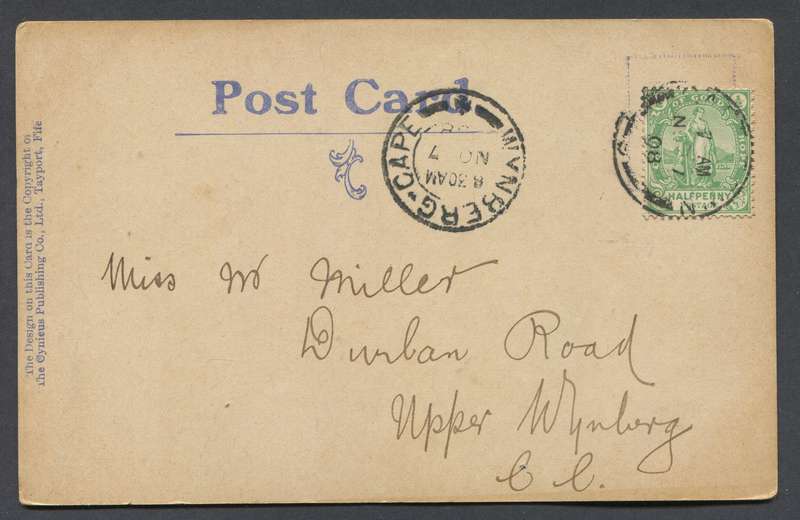 Post Card
WYNBERG·CAPE
8.30AM
NO
7
7 AM
N 7
08
OF GOOD
HALFPENNY
Miss W Miller
Durban Road
Upper Wynberg
C C.
The Design on this Card is the Copyright of
The Cynicus Publishing Co., Ltd., Tayport, Fife